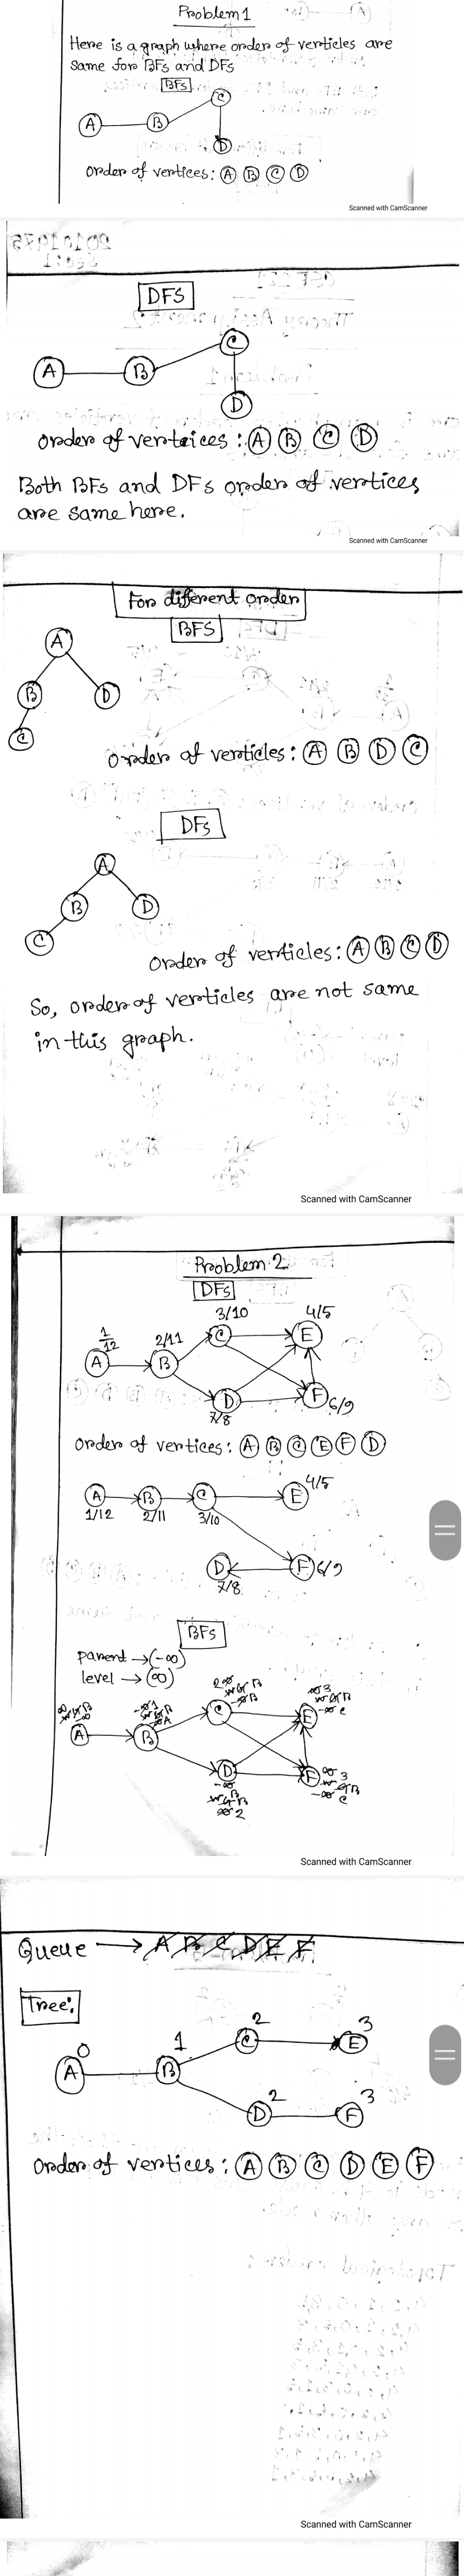 Problem 1
Here is a graph where order of verticles are
same for BFs and DFs
BFs
A B C D
order of vertices: A B C D
Scanned with CamScanner
DFS
A B C D
order of verteices: A B C D
Both BFs and DFs order of vertices
are same here.
Scanned with CamScanner
For different order
BFS
A B D C
order of verticles: A B D C
DFs
A B D C
order of verticles: A B C D
So, order of verticles are not same
in this graph.
Scanned with CamScanner
Problem 2
DFs
1/12 2/11 3/10 4/5
A B C E
D F
7/8 6/9
Order of vertices: A B C E F D
A B C E 4/5
1/12 2/11 3/10
D F 6/9
7/8
BFs
parent → (-∞)
level → (∞)
A B C E
D F
Scanned with CamScanner
Queue → A B C D E F
Tree:
0 1 2 3
A B C E
2 3
D F
Order of vertices: A B C D E F
Scanned with CamScanner